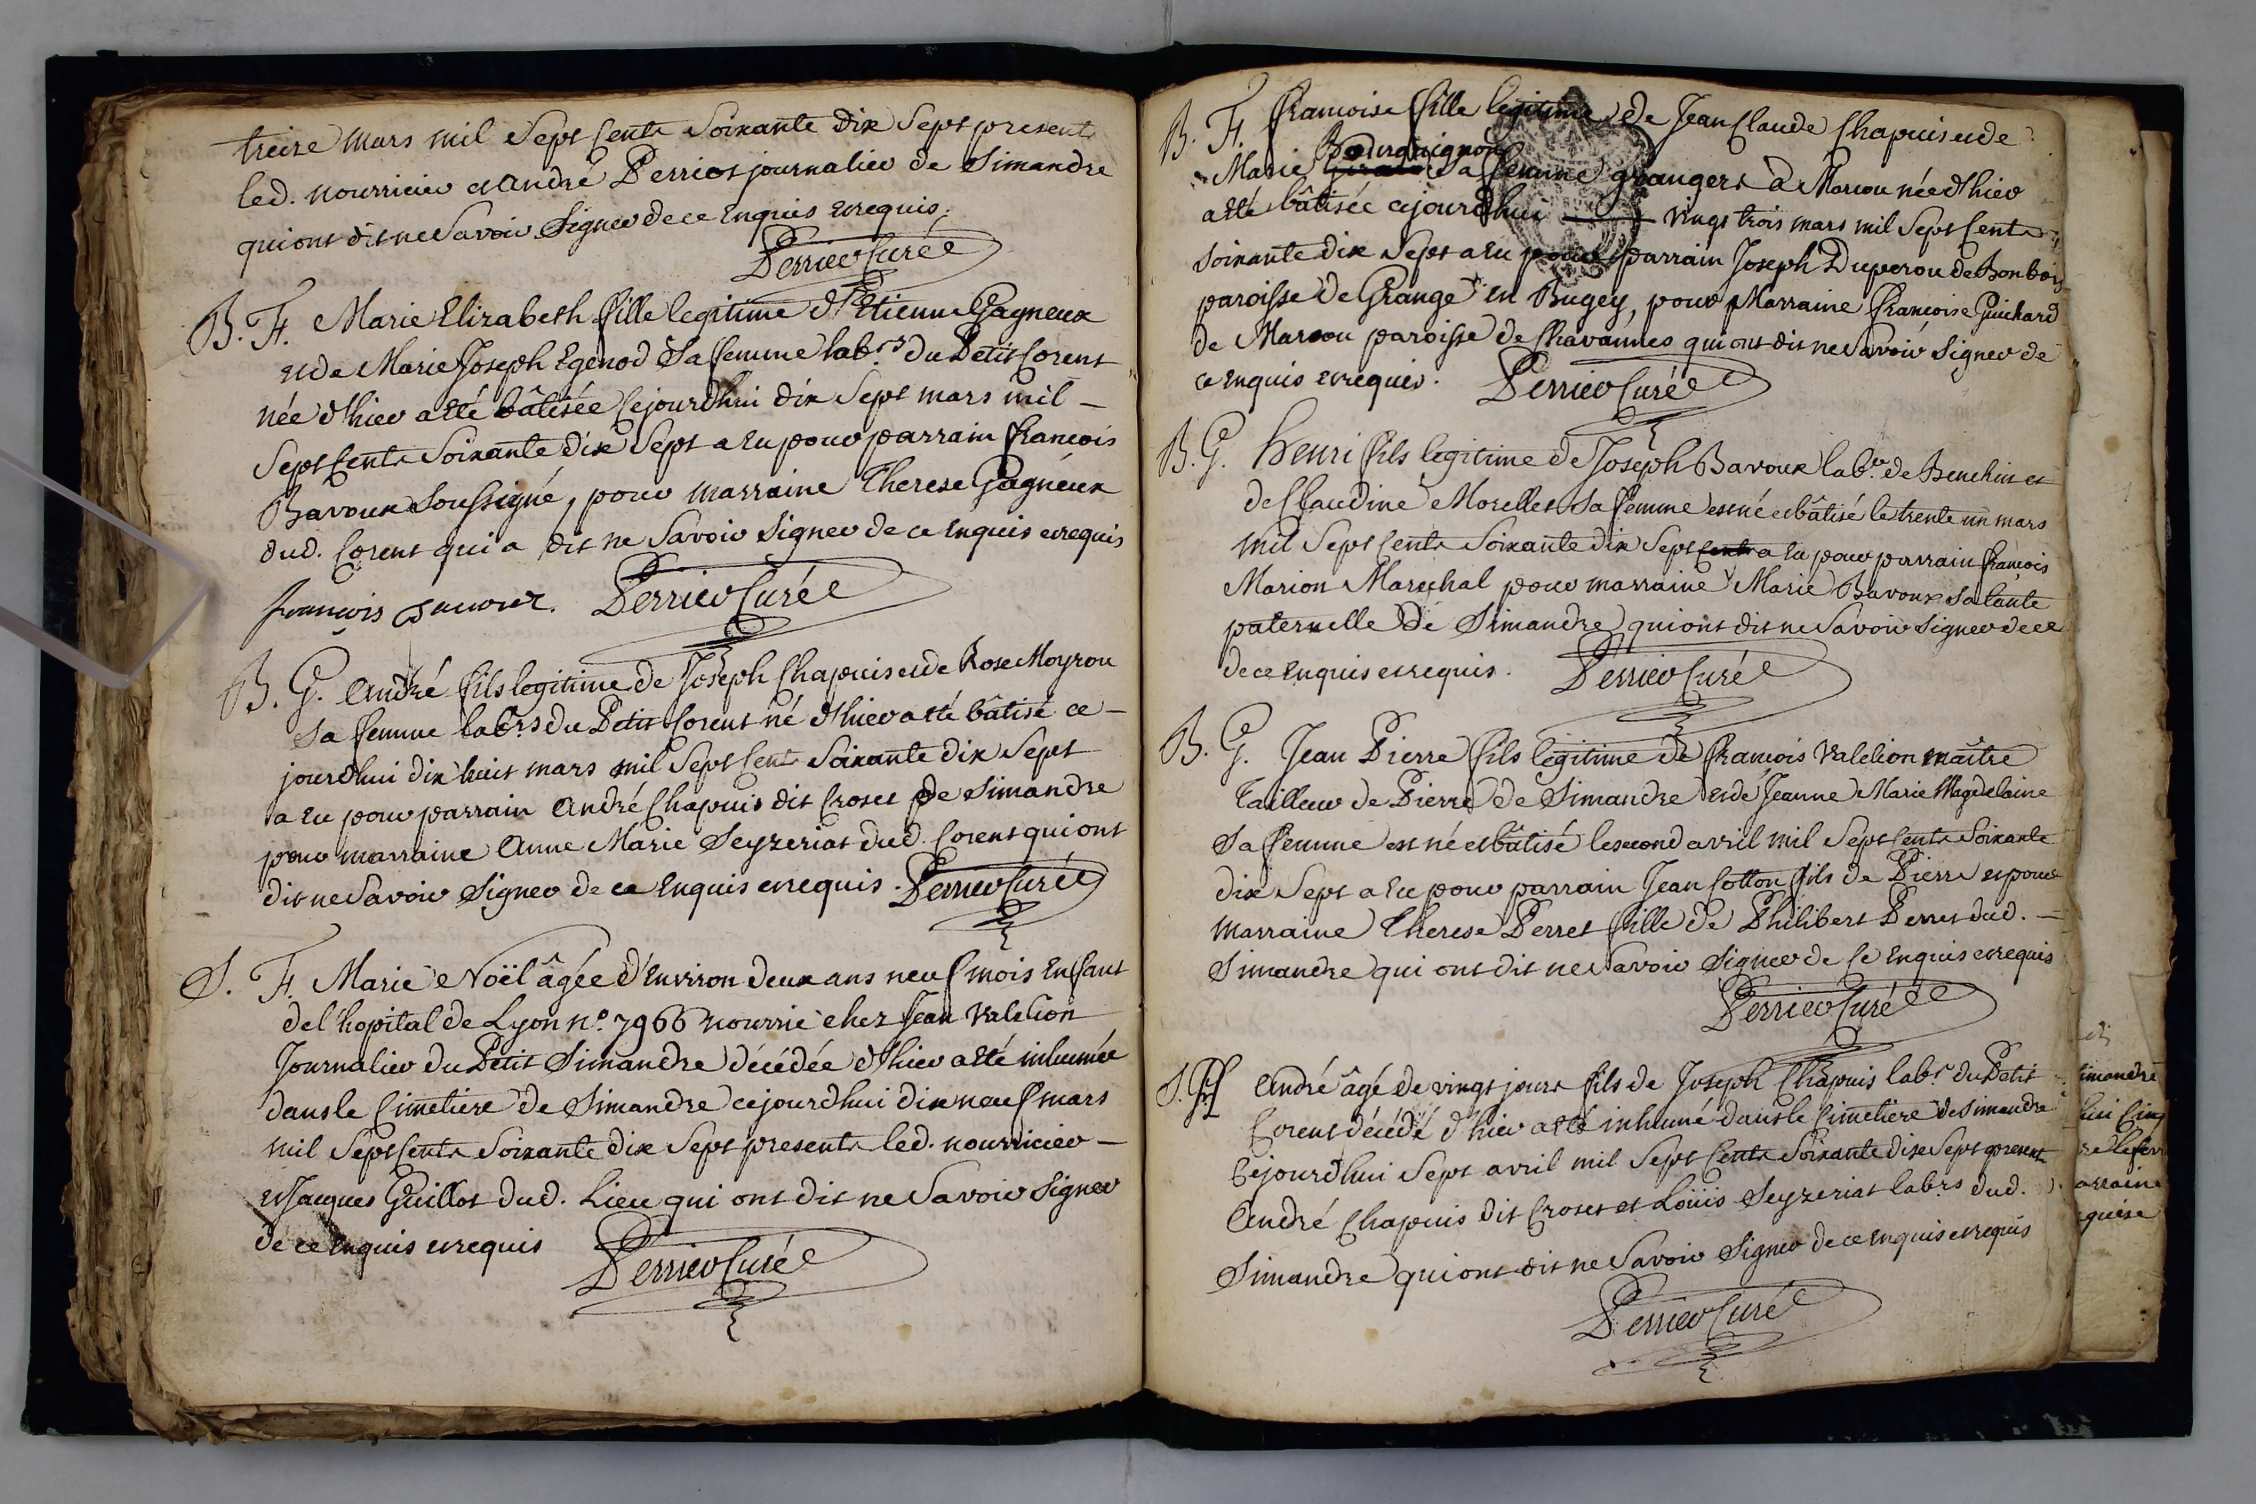 treize mars mil Sept Cents Soixante dix Sept presents
led. nourricier et andré Perriot journalier de Simandre
qui ont dit ne Savoir Signer de ce Enquis et requis.
Perrier Curé
B. F. Marie Elizabeth fille legitime d'Etienne Gagneux
et de Marie Joseph Egenod Sa femme labrs du Petit Corent
née d'hier a eté bâtisée Cejourdhui dix Sept mars mil -
Sept Cents Soixante dix Sept a Eu pour parrain francois
Bavoux Soussigné, pour marraine Therese Gagneux
dud. Corent qui a dit ne Savoir Signer de ce Enquis et requis
françois bavoux. Perrier Curé
B. G. André fils legitime de Joseph Chapuis et de Rose Moyron
Sa femme labrs du Petit Corent né d'hier a eté bâtisé ce -
jourdhui dix huit mars mil Sept Cents Soixante dix Sept
a Eu pour parrain André Chapuis dit Croset de Simandre
pour marraine Anne Marie Seyzeriat dud. Corent qui ont
dit ne Savoir Signer de ce Enquis et requis. Perrier Curé
S. F. Marie Noël âgée d'Environ deux ans neuf mois Enfant
de l'hopital de Lyon n°. 7966 nourrie chez Jean Valelion
Journalier du Petit Simandre décédée d'hier a eté inhumée
dans le Cimetiere de Simandre cejourdhui dix neuf mars
mil Sept Cents Soixante dix Sept presents led. nourricier -
et Jacques Guillot dud. Lieu qui ont dit ne Savoir Signer
de ce Enquis et requis Perrier Curé
B. F. francoise fille legitime de Jean Claude Chapuis et de
Bourguignon
Marie Sa femme grangers à Marcou née d'hier
a eté bâtisée cejourdhui ——— vingt trois mars mil Sept Cents
Soixante dix Sept a Eu pour parrain Joseph Duperou de Bonbois
paroisse de Grange en Bugey, pour Marraine francoise Guichard
de Marcou paroisse de Chavannes qui ont dit ne Savoir Signer de
ce Enquis et requis. Perrier Curé
B. G. Henri fils legitime de Joseph Bavoux labr. de Benchin et
de Claudine Morellet Sa femme est né et bâtisé le trente un mars
mil Sept Cents Soixante dix Sept cents a Eu pour parrain françois
Marion Marechal pour marraine Marie Bavoux Sa tante
paternelle de Simandre qui ont dit ne Savoir Signer de ce
de ce Enquis et requis. Perrier Curé
B. G. Jean Pierre fils legitime de francois Valelion maître
Tailleur de Pierre de Simandre et de Jeanne Marie Magdelaine
Sa femme est né et bâtisé le second avril mil Sept Cents Soixante
dix Sept a Eu pour parrain Jean Cotton fils de Pierre et pour
marraine Therese Perret fille de Philibert Perret dud. -
Simandre qui ont dit ne Savoir Signer de ce Enquis et requis
Perrier Curé
S. André âgé de vingt jours fils de Joseph Chapuis labr. du Petit
Corent décédé d'hier a eté inhumé dans le Cimetiere de Simandre
Cejourdhui Sept avril mil Sept Cents Soixante dix Sept present
André Chapuis dit Croset et Loüis Seyzeriat labrs dud.
Simandre qui ont dit ne Savoir Signer de ce Enquis et requis
Perrier Curé